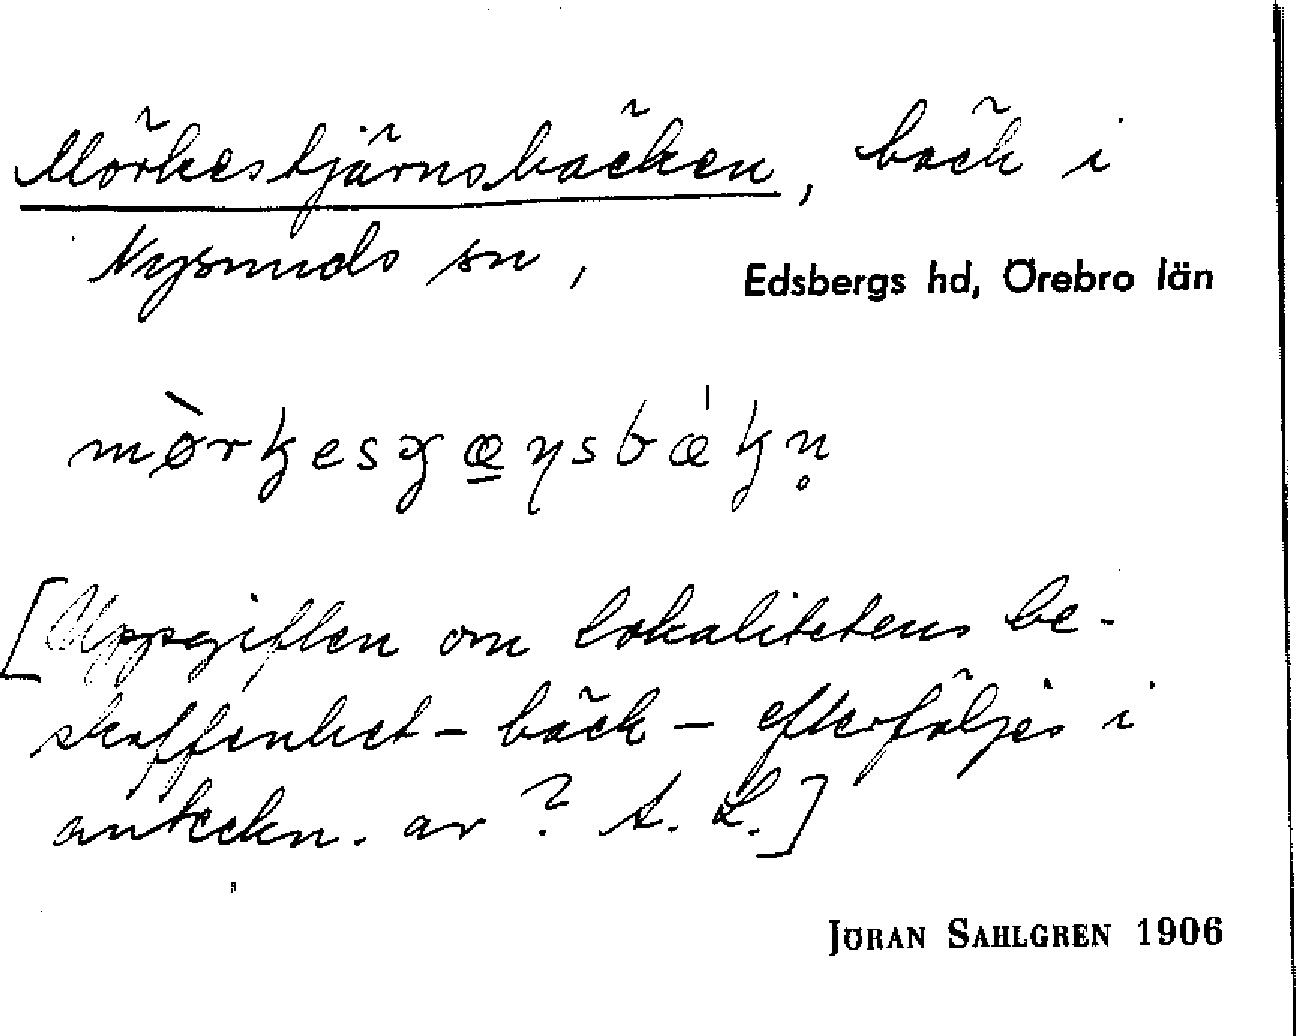 Mörkestjärnsbäcken, bäck i
Nysunds sn, Edsbergs hd, Örebro län
[Uppgiften om lokalitetens be-
skaffenhet - bäck - efterföljes i
anteckn. av ? A. L.]
JÖRAN SAHLGREN 1906